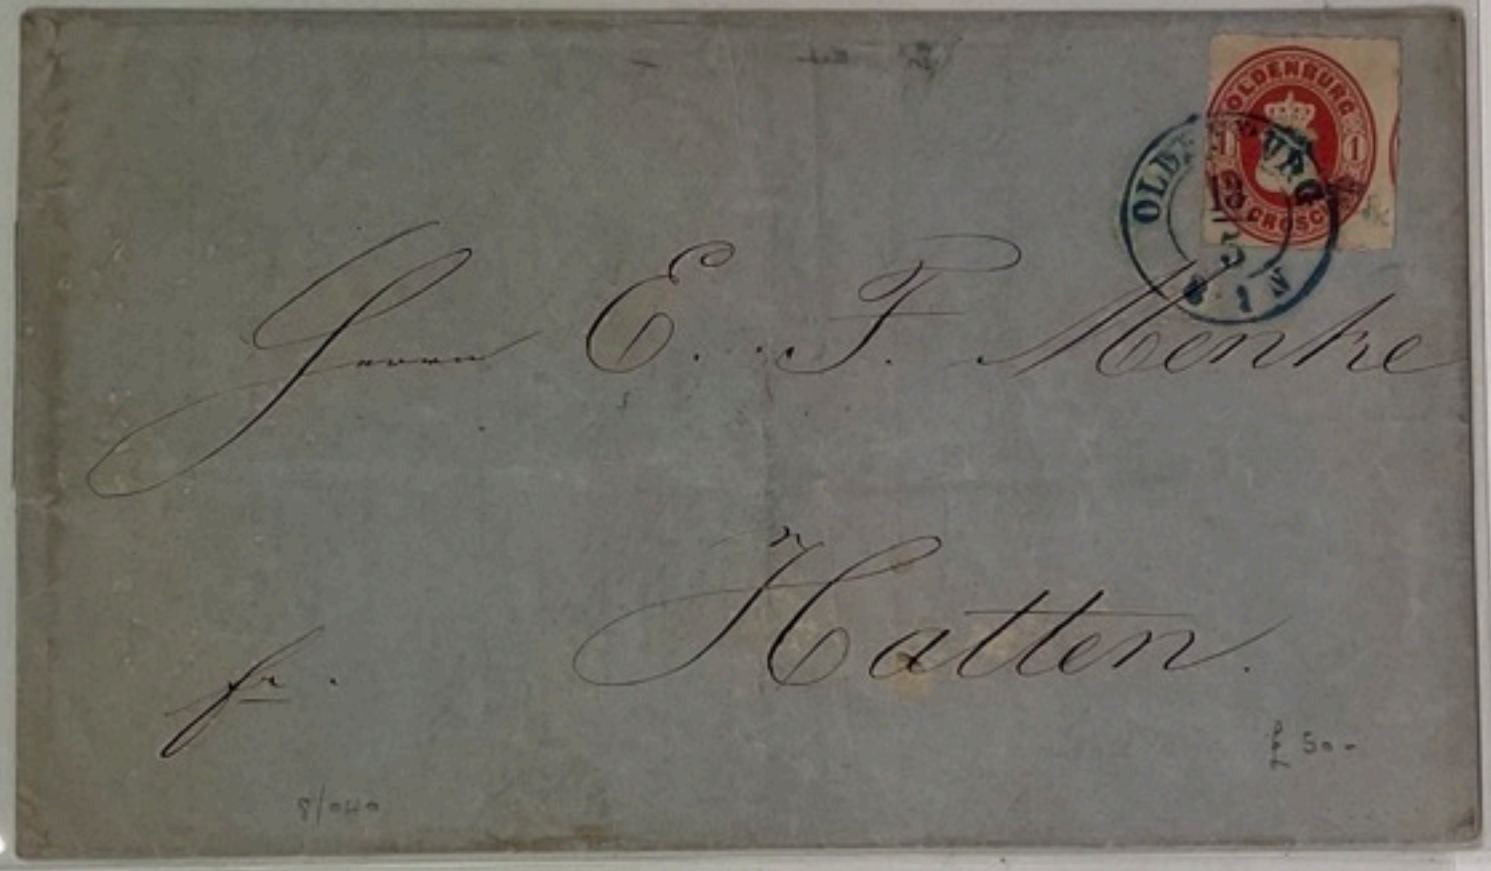 OLDENBURG
1 1
GROSCHEN
OLDENBURG
13
5
2-1 N
Herrn E. F. Menke
Hatten.
fr.
£ 50-